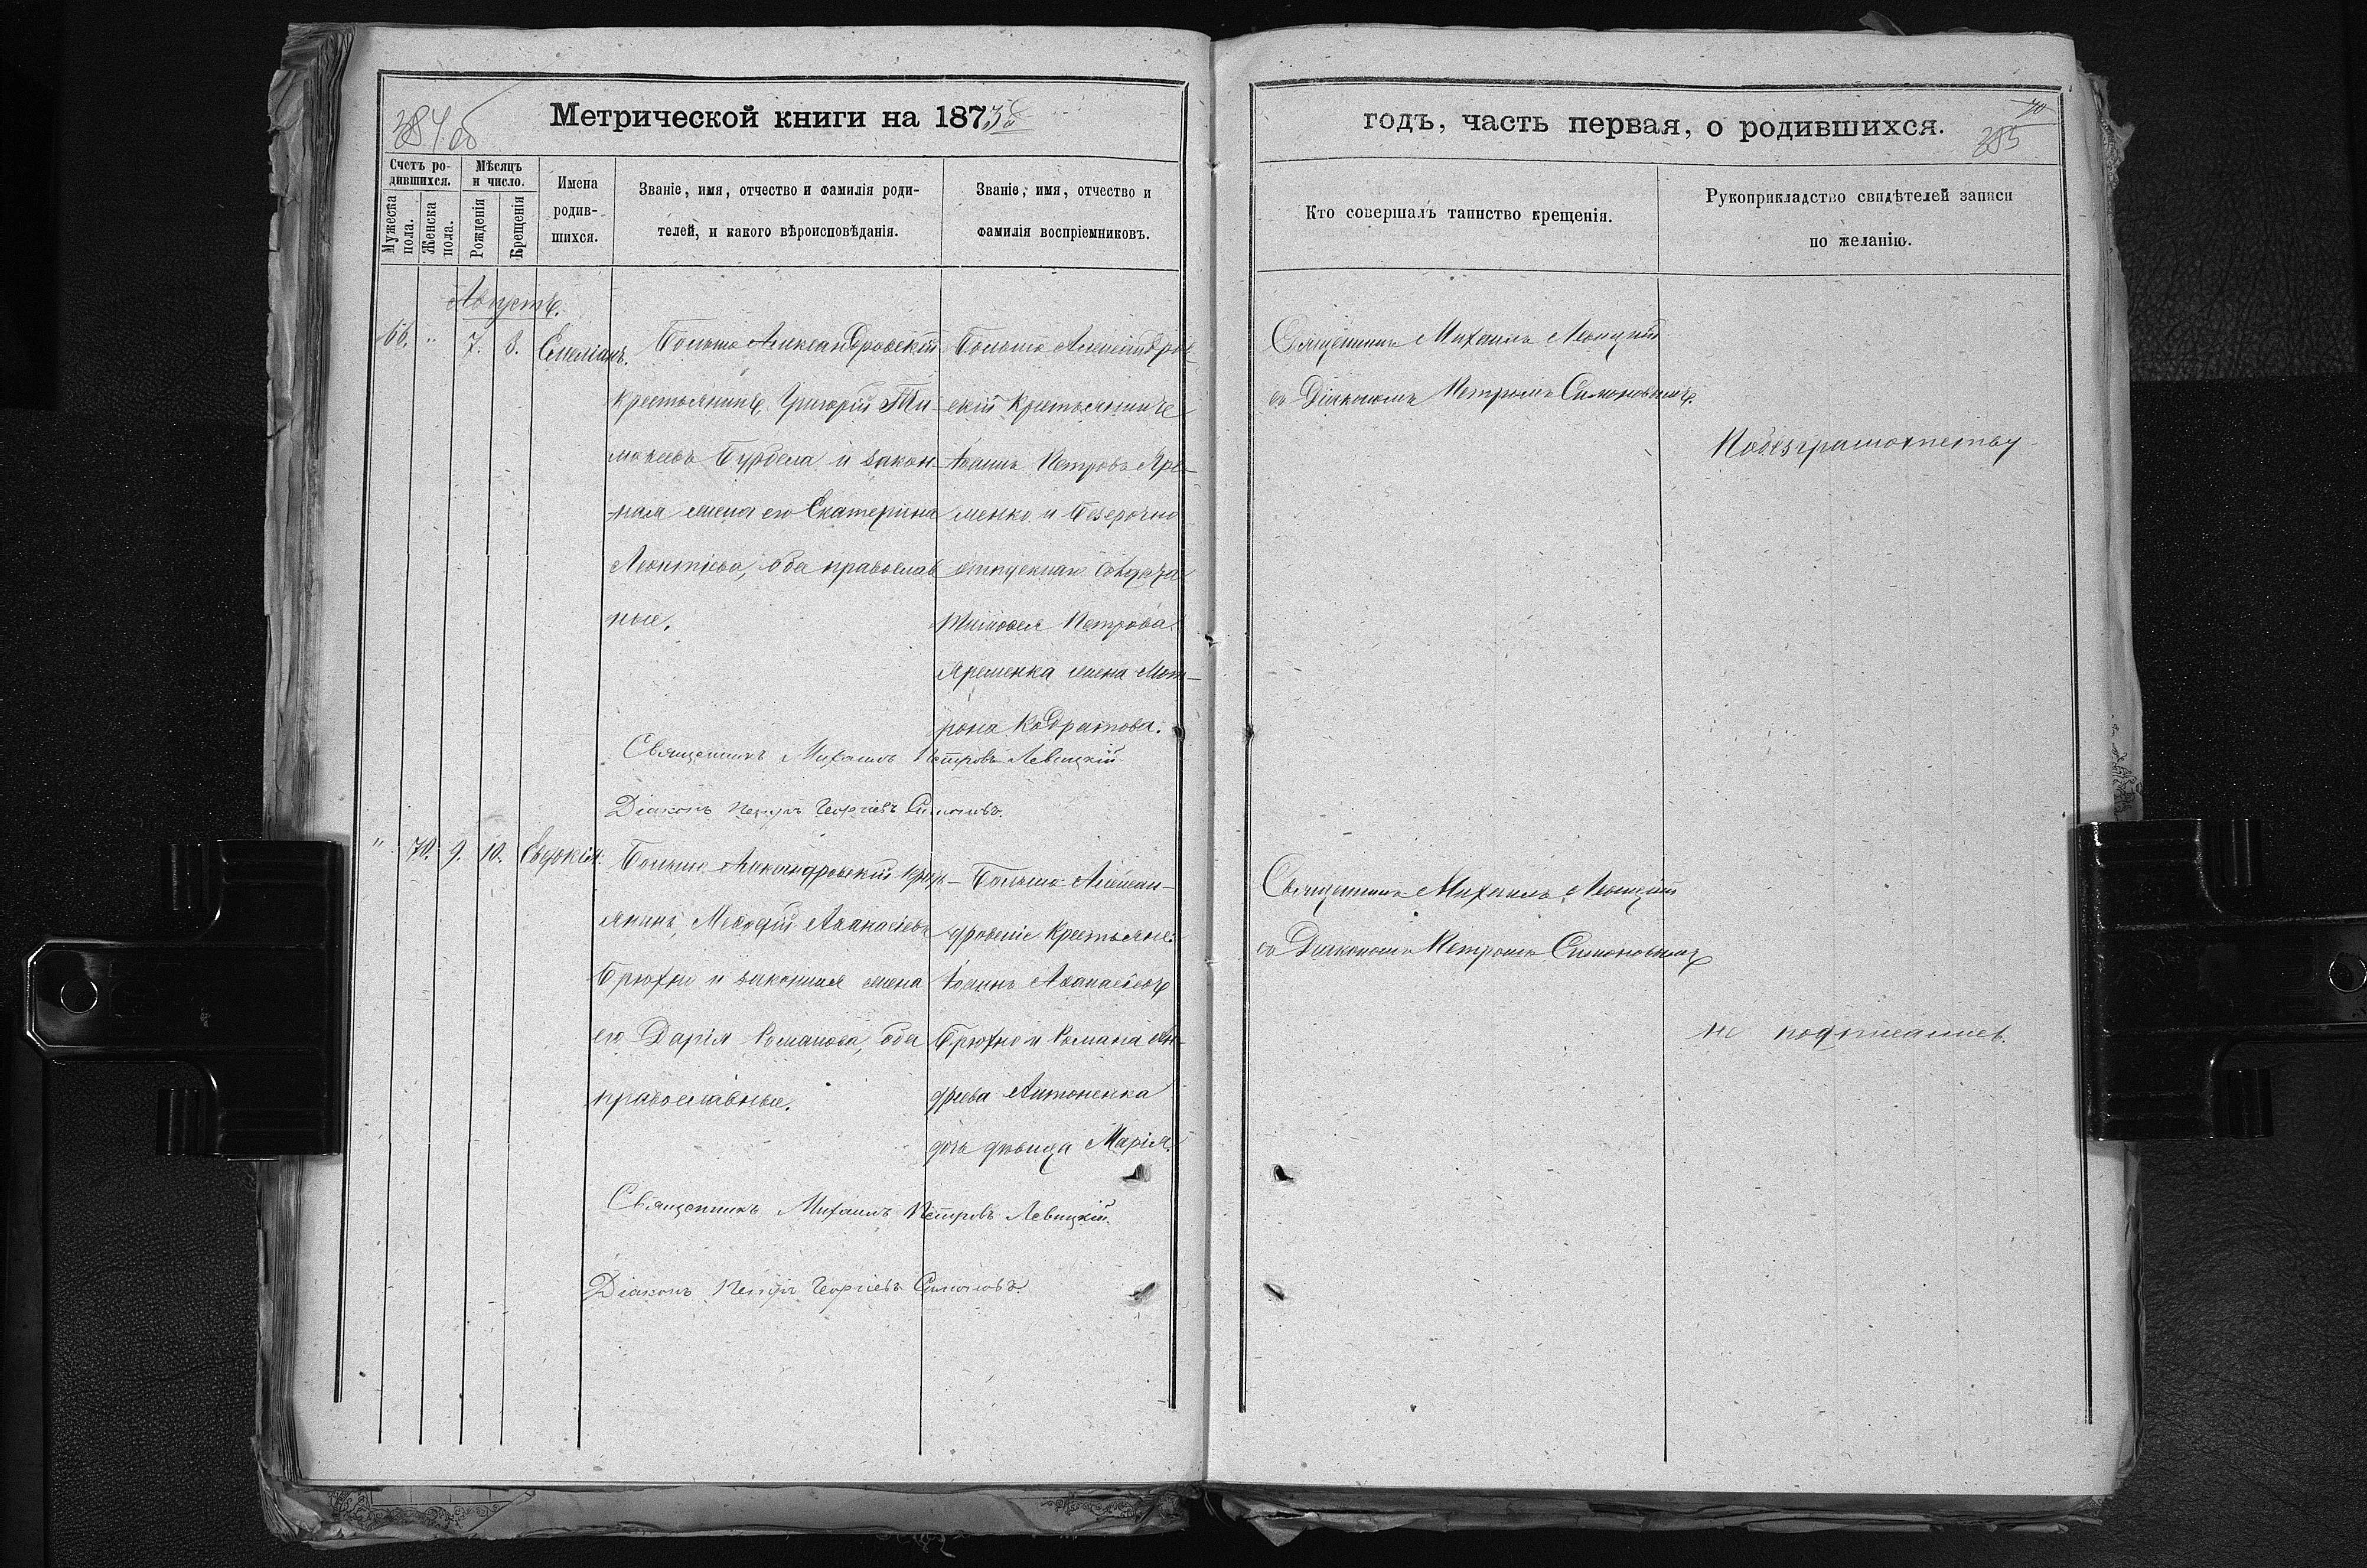 284 об
Метрической книги на 1873й
Счетъ ро-
дившихся.
Мѣсяцъ
и число.
Мужеска
пола.
Женска
пола.
Рожденія
Крещенія
Имена
родив-
шихся.
Званіе, имя, отчество и фамилія роди-
телей, и какого вѣроисповѣданія.
Званіе, имя, отчество и
фамилія воспріемниковъ.
Августъ.
66. " 7. 8. Емеліанъ.
Больше Александровскій
крестьянинъ Григорій Ти-
моѳеевъ Бурбела и закон-
ная жена его Екатерина
Леонтіева, оба православ
ные.
Больше Александров
скій крестьянинъ
Іоаннъ Петровъ Яре-
менко и безсрочно
отпускнаго солдата
Тимоѳея Петрова
Яременка жена Мот-
рона Кодратова.
Священникъ Михаилъ Петровъ Левицкій
Діаконъ Петръ Георгіевъ Симоновъ.
" 70. 9. 10. Евдокія.
Больше Александровскій крест-
янинъ, Меѳодій Аѳанасіевъ
Брюхно и законная жена
его Дарія Романова, оба
православные.
Больше Алексан-
дровскіе крестьяне:
Іоаннъ Аѳанасіевъ
Брюхно и Романа Ан-
дреева Антоненка
дочь дѣвица Марія.
Священникъ Михаилъ Петровъ Левицкій.
Діаконъ Петръ Георгіевъ Симоновъ.
70
285
годъ, часть первая, о родившихся.
Кто совершалъ таинство крещенія.
Рукоприкладство свидѣтелей записи
по желанію.
Священникъ Михаилъ Левицкій
съ Діакономъ Петромъ Симоновымъ.
По безграмотству
Священникъ Михаилъ Левицкій
съ Діакономъ Петромъ Симоновымъ
не подписались.